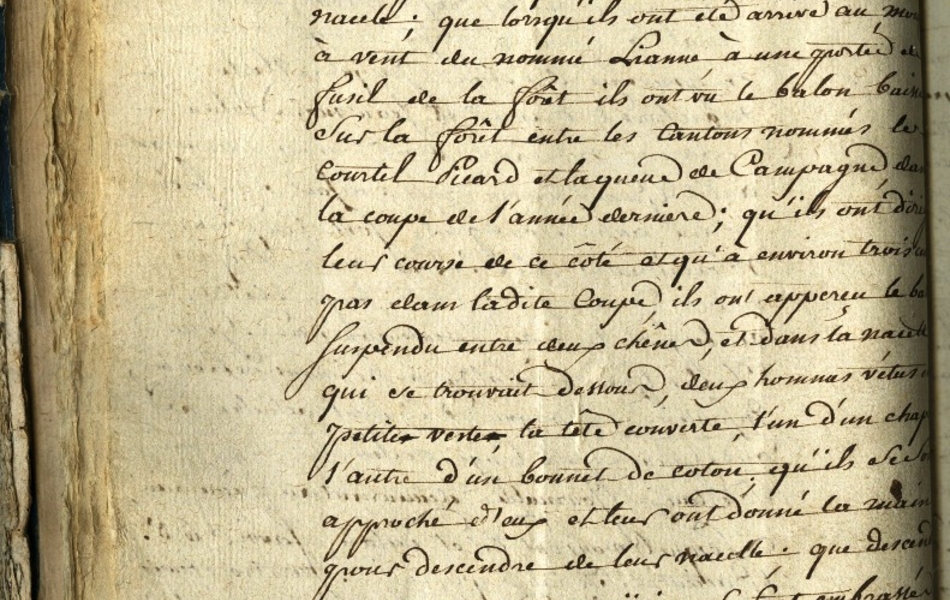 nacele; que lorsqu'ils ont été arrivé au
à vent du nommé Lianne à une portée de
fusil de la forêt ils ont vu le balon
Sur la forêt entre les Cantons nommés le
Courtil Picard et la queue de Campagne
la coupe de l'année derniere; qu'ils ont
leur course de ce côté et qu'à environ trois
pas dans ladite Coupe ils ont apperçu le
suspendu entre deux chênes, et dans la
qui se trouvait dessous, deux hommes vétus
petites vestes la tête couverte, l'un d'un
l'autre d'un bonnet de coton; qu'ils se
approché d'eux et leur ont donné la main
pour descendre de leur nacelle; que